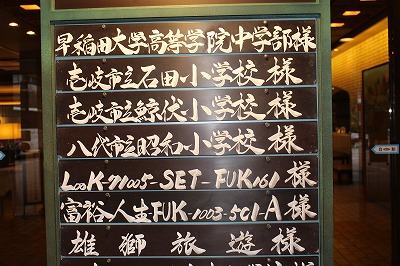 早稲田大學高等学院中学部様
壱岐市立石田小学校様
壱岐市立鯨伏小学校様
八代市立昭和小学校様
LOOK-71005-SET-FUK161様
富裕人生FUK-1003-5C1-A様
雄獅旅遊様